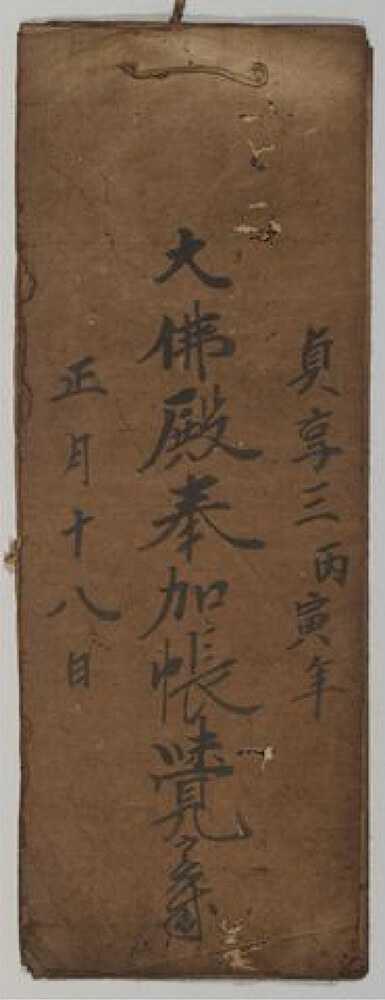 貞享三丙寅年
大佛殿奉加帳覺
正月十八日